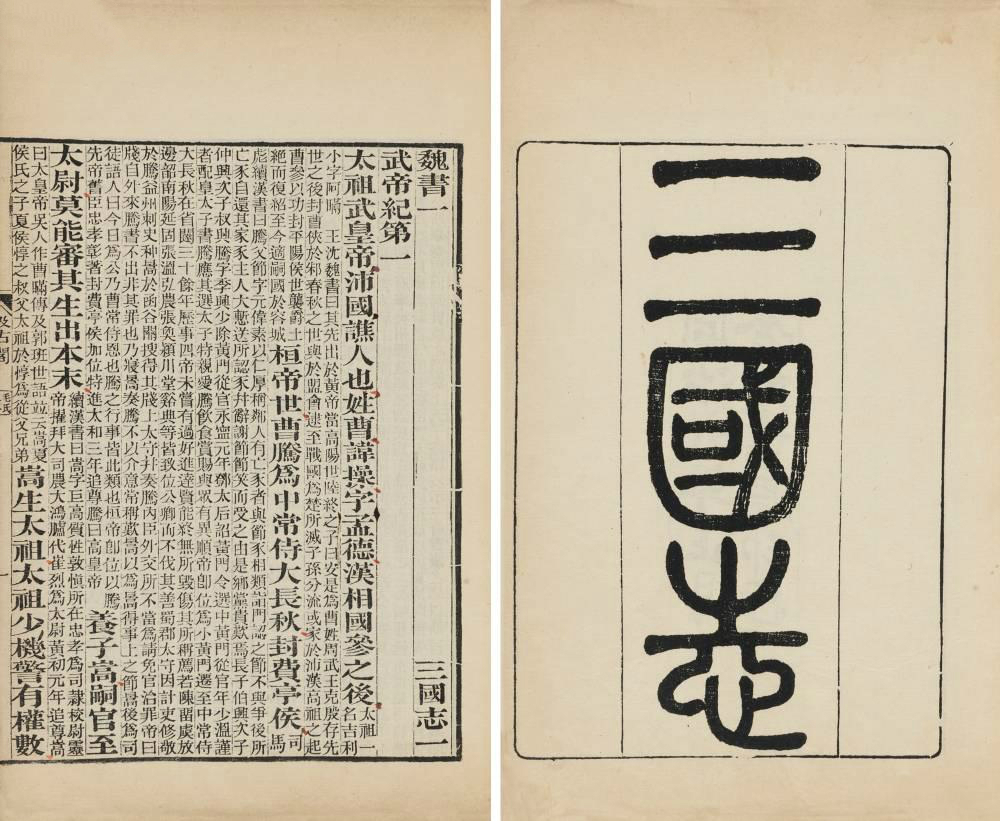 三國志
魏書一 三國志一
武帝紀第一
太祖武皇帝沛國譙人也姓曹諱操字孟德漢相國參之後
太祖一
名吉利
小字阿瞞 王沈魏書曰其先出於黃帝當高陽世陸終之子曰安是爲曹姓周武王克殷存先
世之後封曹俠於邾春秋之世與於盟會逮至戰國爲楚所滅子孫分流或家於沛漢高祖之起
曹參以功封平陽侯世襲爵土
絕而復紹至今適嗣國於容城
桓帝世曹騰爲中常侍大長秋封費亭侯
司
馬
彪續漢書曰騰父節字元偉素以仁厚稱鄰人有亡豕者與節豕相類詣門認之節不與爭後所
亡豕自還其家豕主人大慚送所認豕并辭謝節節笑而受之由是鄉黨貴歎焉長子伯興次子
仲興次子叔興騰字季興少除黃門從官永寧元年鄧太后詔黃門令選中黃門從官年少溫謹
者配皇太子書騰應其選太子特親愛騰飲食賞賜與眾有異順帝卽位爲小黃門遷至中常侍
大長秋在省闥三十餘年歷事四帝未嘗有過好進達賢能終無所毀傷其所稱薦若陳留虞放
邊韶南陽延固張溫弘農張奐潁川堂谿典等皆致位公卿而不伐其善蜀郡太守因計吏修敬
於騰益州刺史种暠於函谷關搜得其牋上太守并奏騰內臣外交所不當爲請免官治罪帝曰
牋自外來騰書不出非其罪也乃寢暠奏騰不以介意常稱歎暠以爲暠得事上之節暠後爲司
徒語人曰今日爲公乃曹常侍恩也騰之行事皆此類也桓帝卽位以騰
先帝舊臣忠孝彰著封費亭侯加位特進太和三年追尊騰曰高皇帝
養子嵩嗣官至
太尉莫能審其生出本末
續漢書曰嵩字巨高質性敦愼所在忠孝爲司隸校尉靈
帝擢拜大司農大鴻臚代崔烈爲太尉黃初元年追尊嵩
曰太皇帝吳人作曹瞞傳及郭班世語並云嵩夏
侯氏之子夏侯惇之叔父太祖於惇爲從父兄弟
嵩生太祖太祖少機警有權數